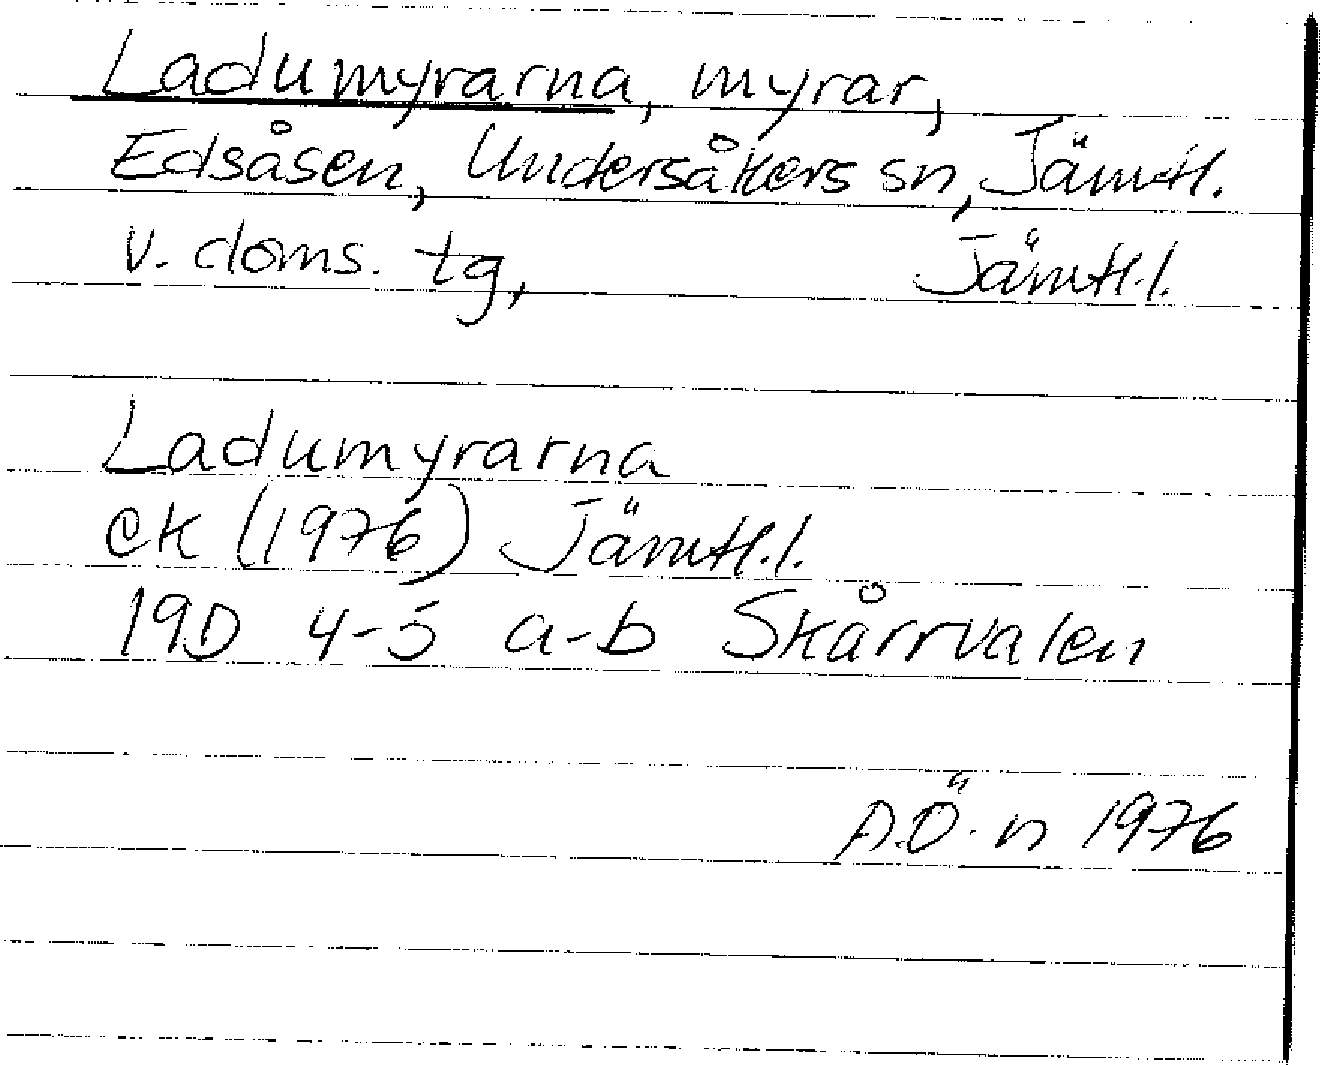 Ladumyrarna, myrar,
Edsåsen, Undersåkers sn, Jämtl.
v. doms. tg, Jämtl.l.
Ladumyrarna
ek (1976) Jämtl.l.
19D 4-5 a-b Skårrvalen
A.Ö.n 1976